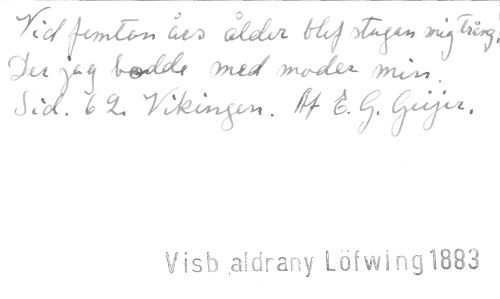 Vid femton års ålder blef stugan mig trång,
Der jag bodde med moder min.
Sid. 62. Vikingen. Af E. G. Geijer.
Visb aldrany Löfwing 1883